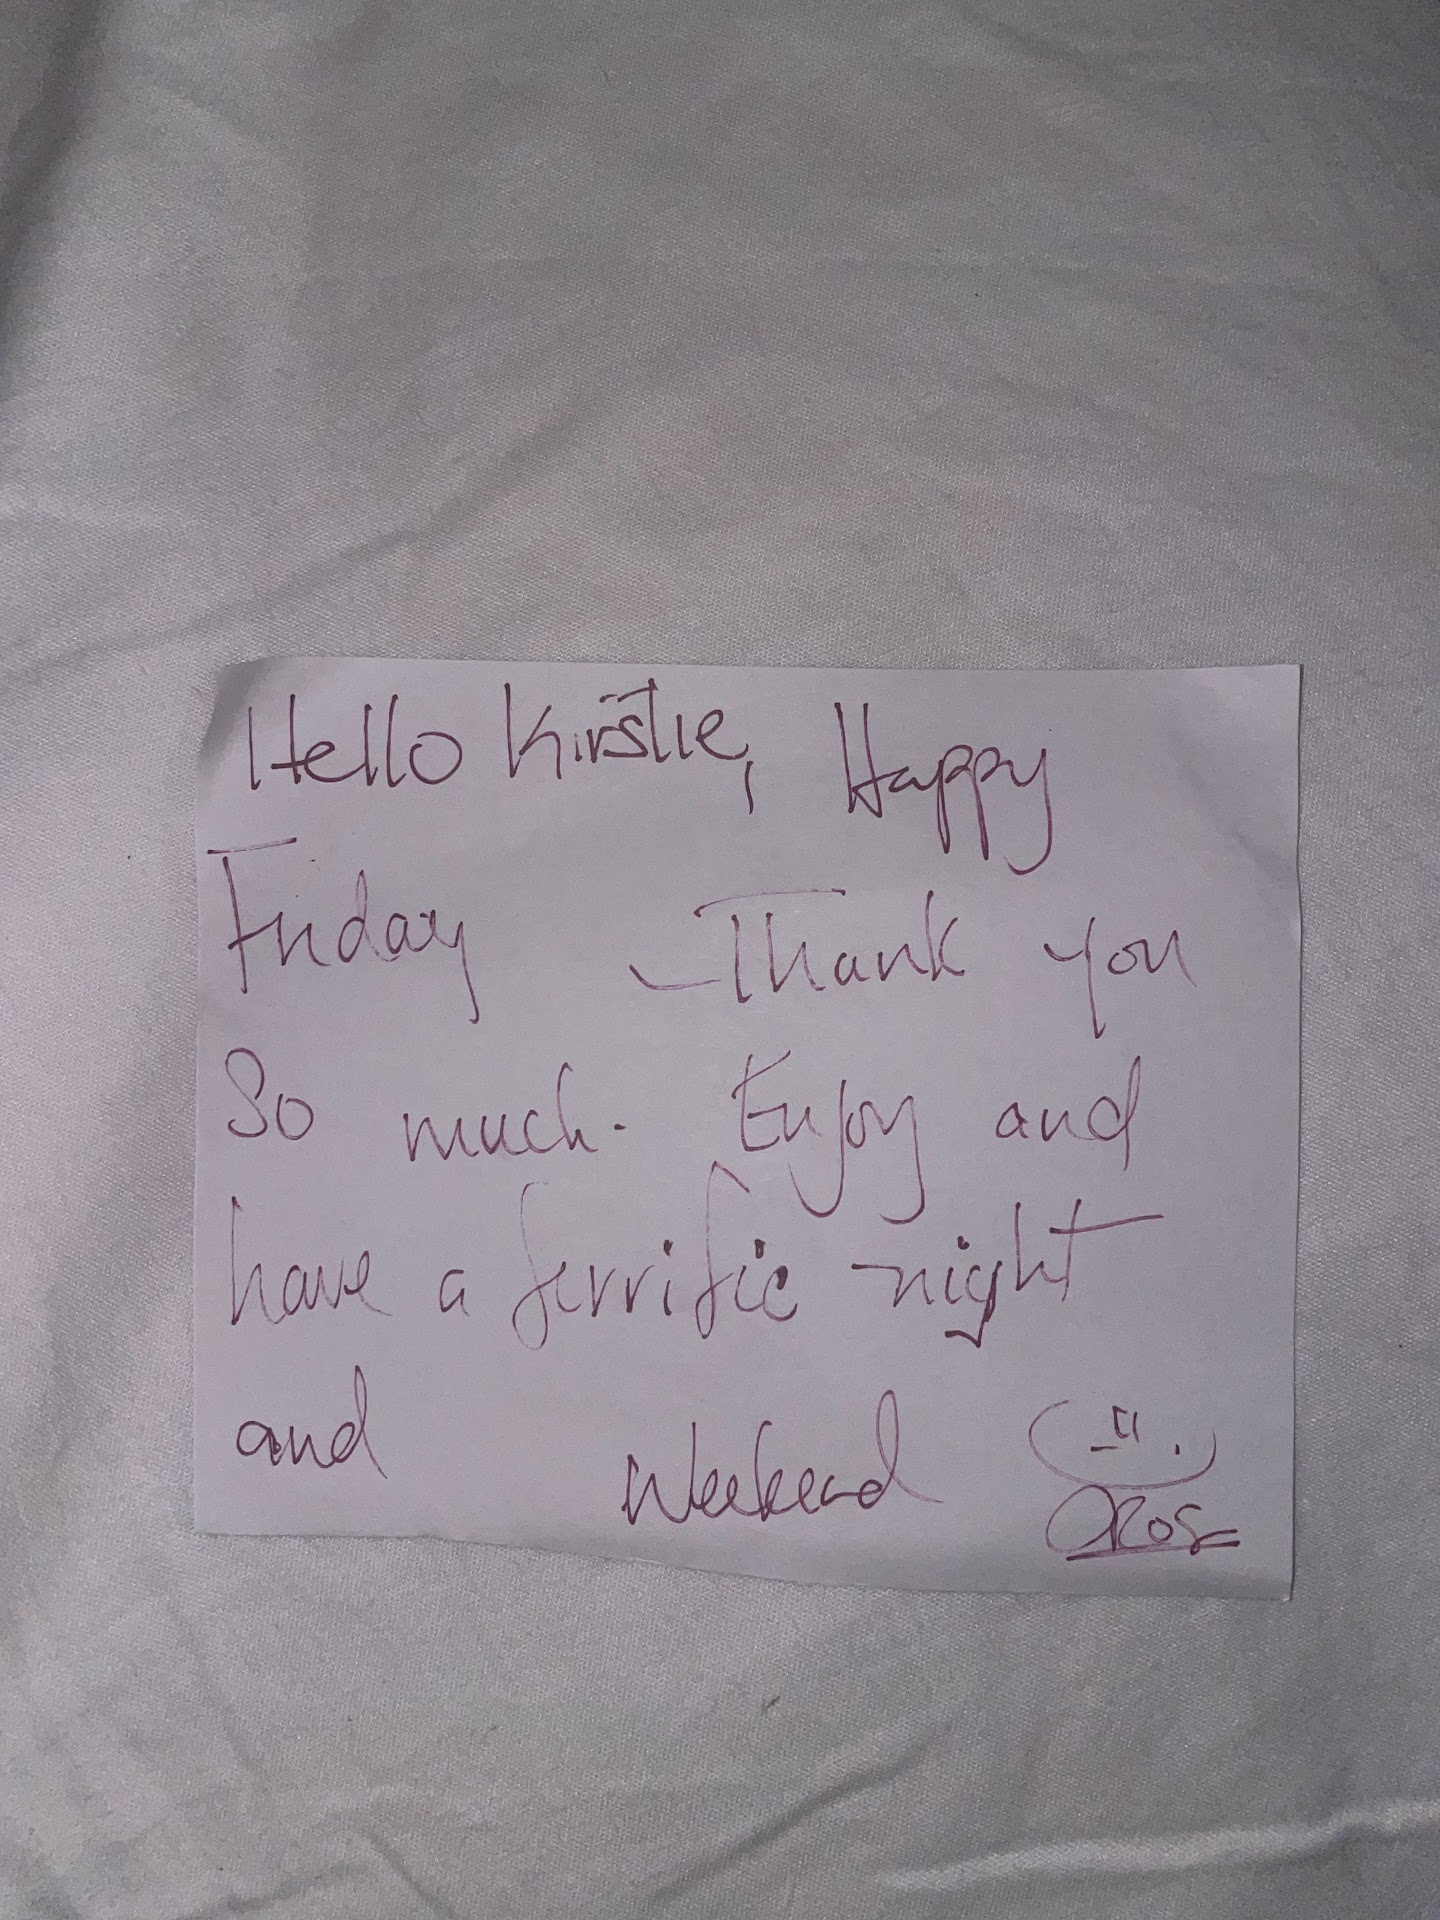 Hello Kirstie, Happy
Friday Thank you
So much. Enjoy and
have a terrific night
and Weekend